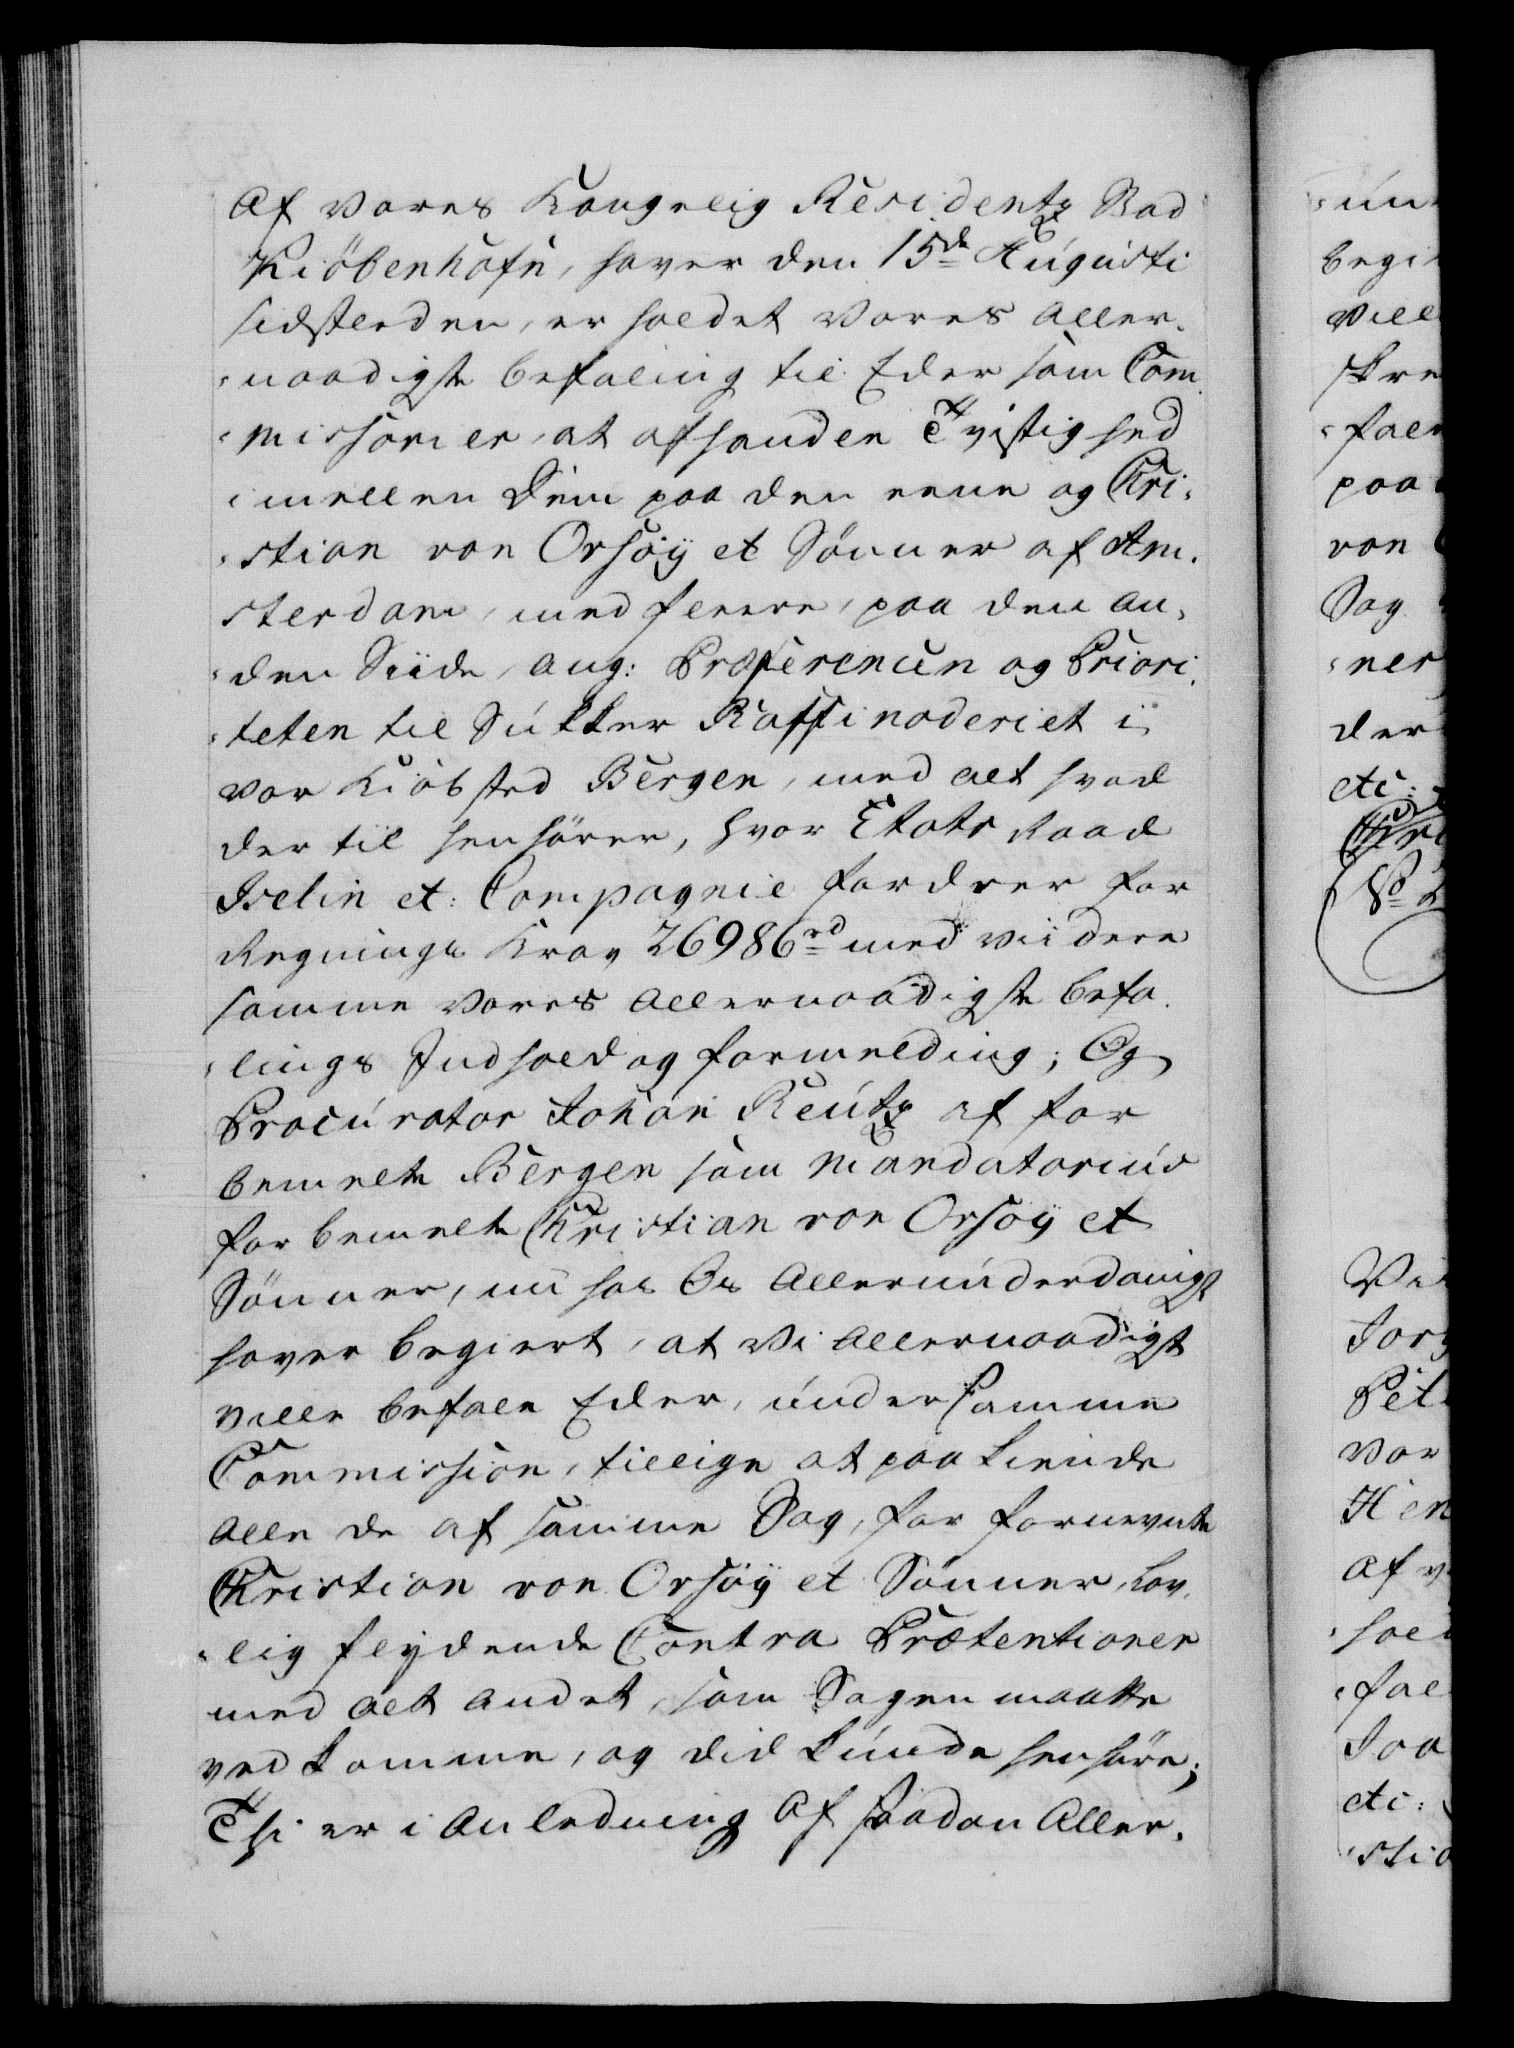 af vores Kongelig Residentz Stad
Kiöbenhafn, haver den 15de Augusti
sidstleeden, er holdet vores aller-
naadigste befaling til Eder som Com-
missorier, at afhandle Tvistighed
imellem Dem paa den eene og Chri-
stian von Orsöÿ et Sönner af Am-
sterdam, med fleere, paa den an-
den Siide, ang: Præferencen og Priori-
teten til Sukker Raffinaderiet i
vor Kiöbsted Bergen, med alt hvad
der til henhörer, hvor Etats Raad
Iselin et: Compagnie fordrer for
Regnings Krav 26986rd med viidere
samme vores allernaadigste befa-
lings Indhold og formelding; Og
Procurator Johan Reutz af for
bemelte Bergen som Mandatarius
for bemelte Christian von Orsöÿ et
Sönner, nu hos Os allerunderdanigst
haver begiert, at Vi allernaadigst
ville befale Eder, under samme
Commission, tillige at paakiende
alle de af samme Sag, for fornevnte
Christian von Orsöÿ et Sönner, lov-
lig flÿdende Contra Prætentioner
med alt andet, som Sagen maatte
vedkomme, og did kunde henhöre;
Thi er i Anledning af saadan Aller-